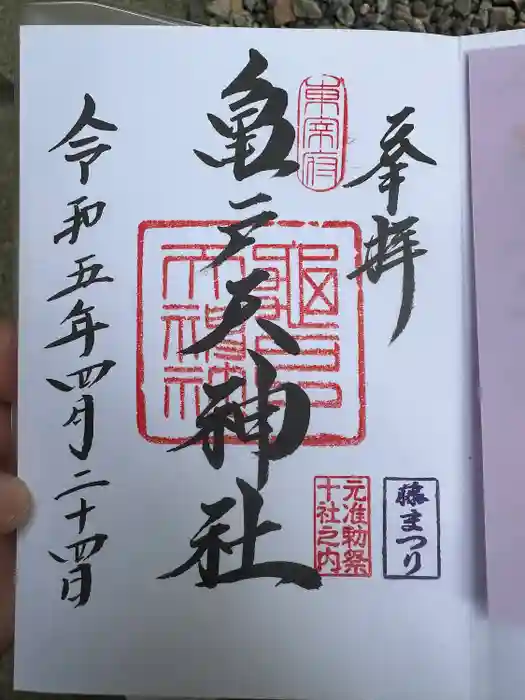 奉拝
藤まつり
東宰府
亀戸天神社
亀戸天神社
元准勅祭
十社之内
令和五年四月二十四日